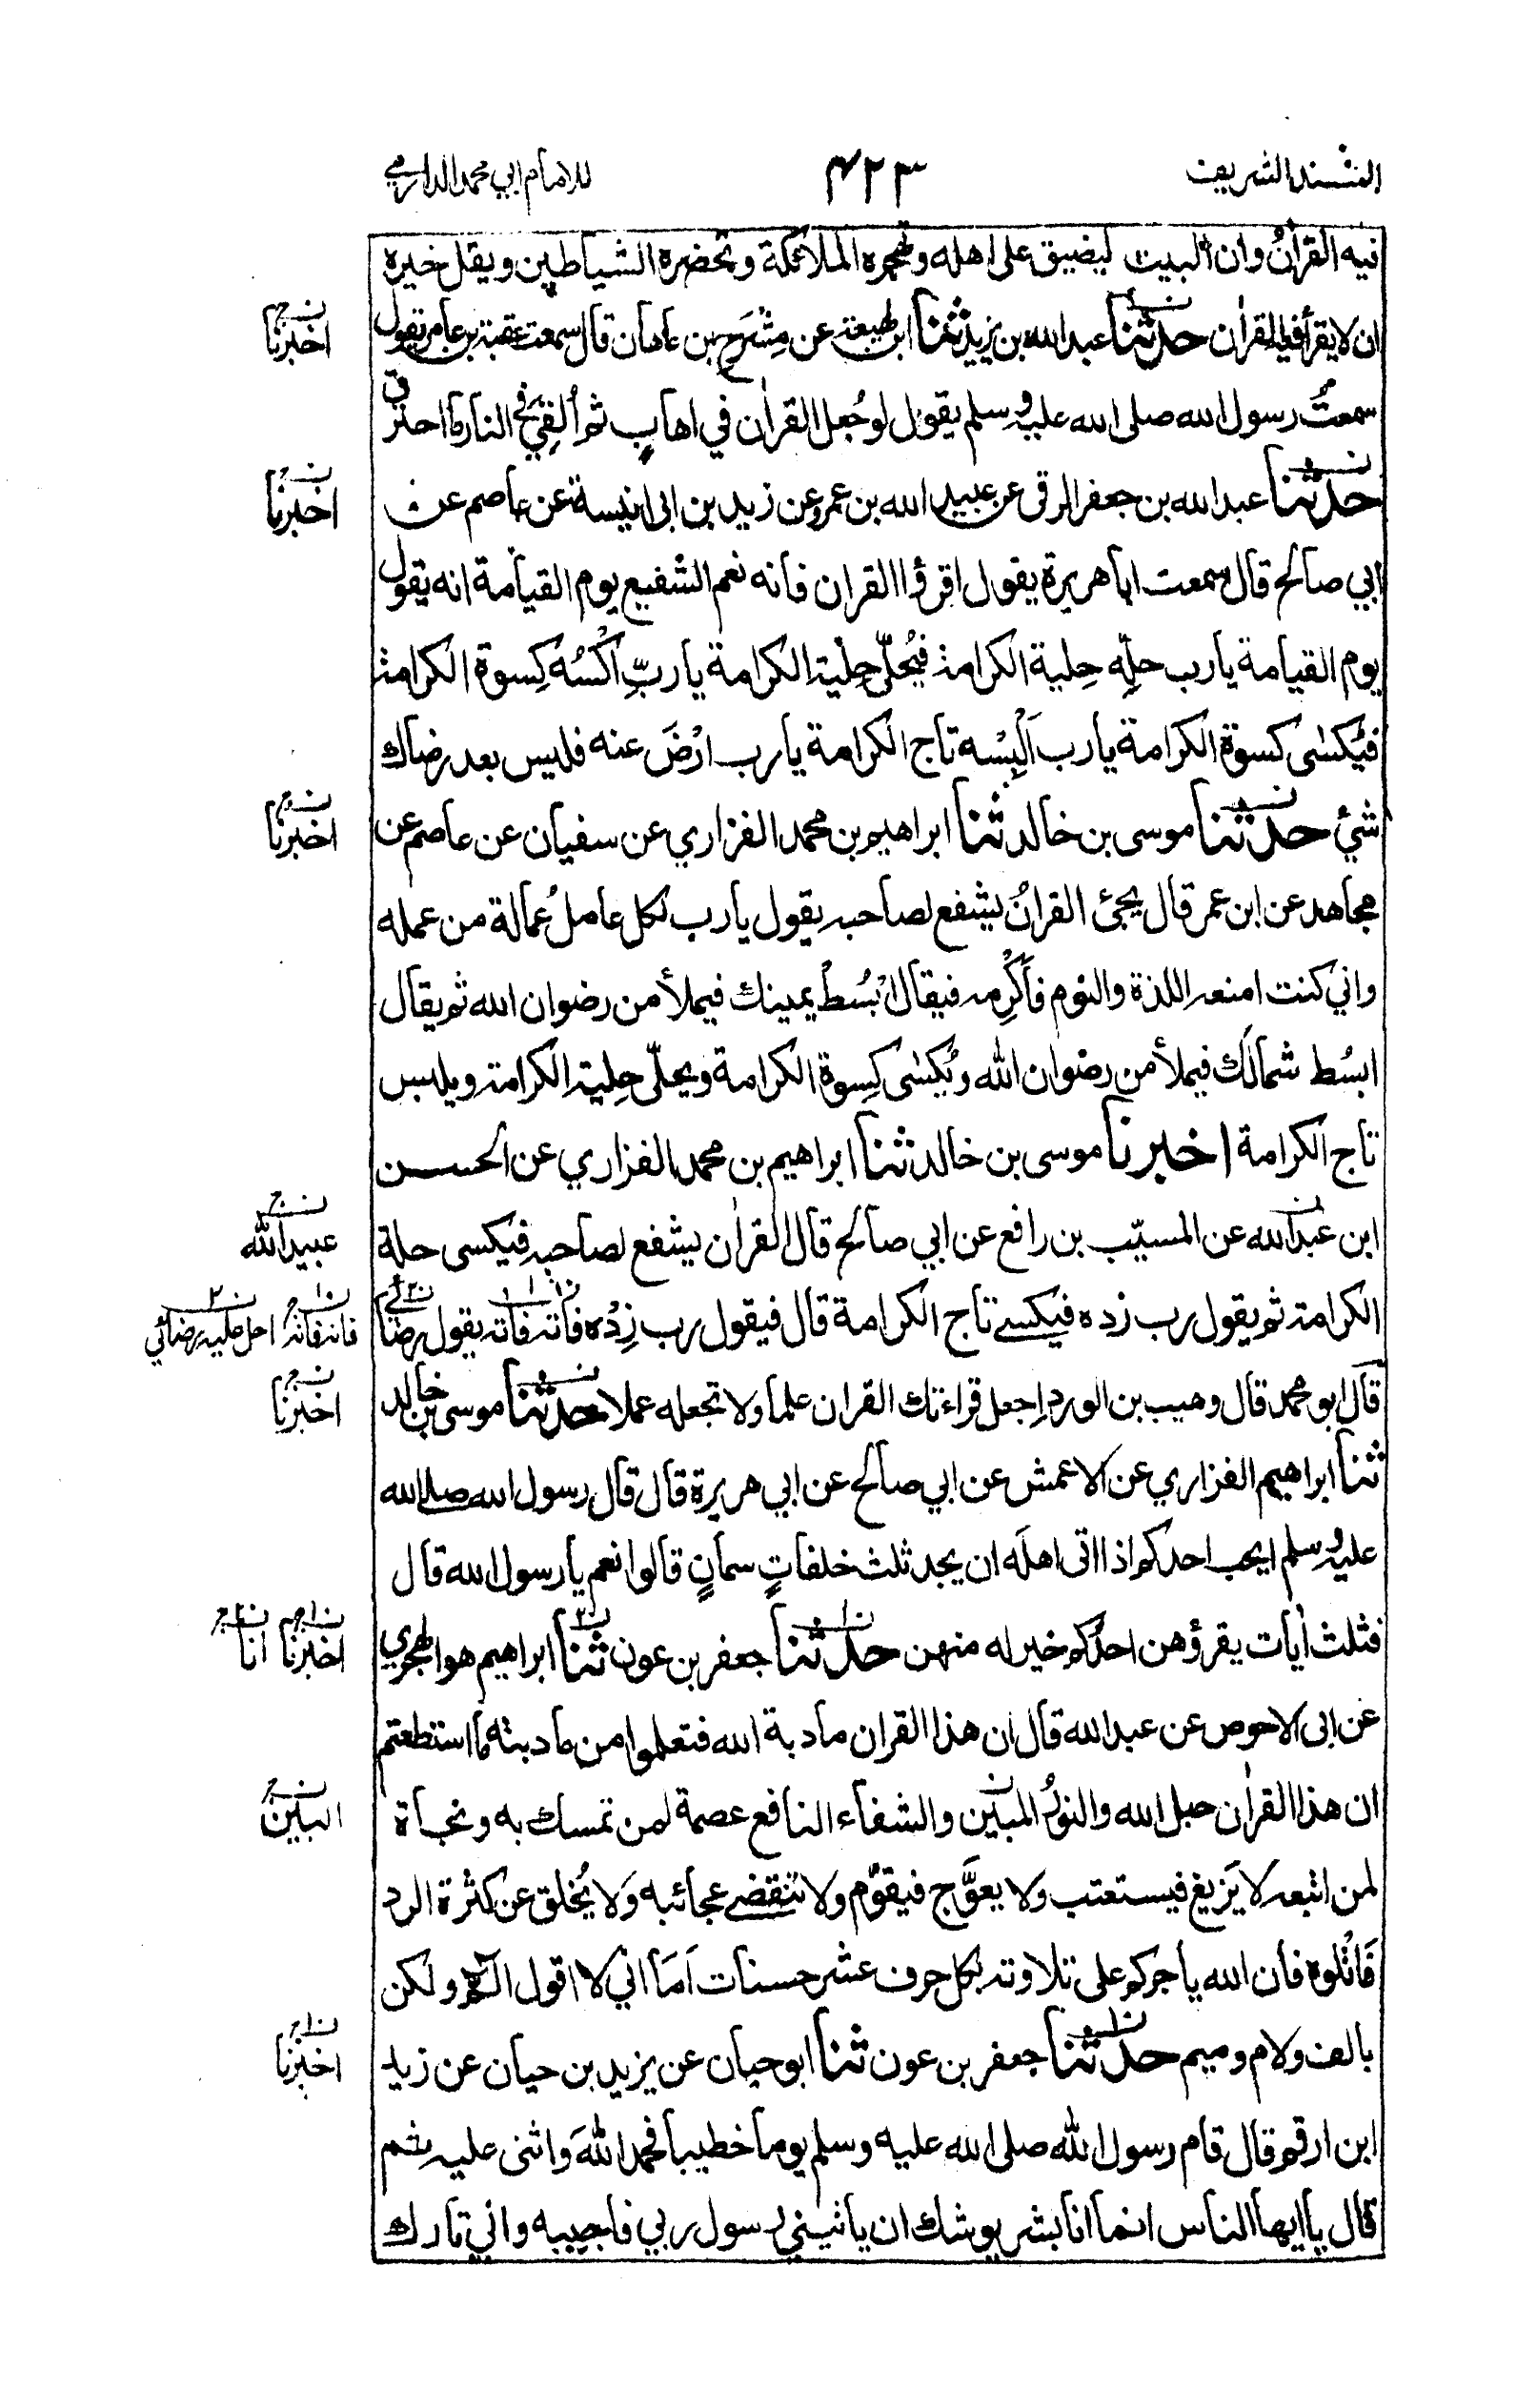 المسند الشريف ۴۲۳ للامام ابي محمد الدارمي
فيه القرانُ وان البيت ليضيق على اهله وتهجره الملائكة وتحضره الشياطين ويقل خيره
ان لا يقرأ فيه القران حدثنا عبد الله بن يزيد ثنا ابن لهيعة عن مِشْرَح بن عاهان قال سمعت عقبة بن عامر يقول
اخبرنا
سمعتُ رسول الله صلى الله عليه وسلم يقول لو جُعل القران في اهابٍ ثم اُلقِيَ في النار ما احترق
حدثنا عبد الله بن جعفر الرقى عن عبيد الله بن عمرو عن زيد بن ابى انيسة عن عاصم عن
اخبرنا
ابي صالح قال سمعت ابا هريرة يقول اقرؤا القران فانه نعم الشفيع يوم القيامة انه يقول
يوم القيامة يارب حلِّه حِلية الكرامة فيُحلّى حِلْية الكرامة يا ربِّ اُكْسُه كِسوة الكرامة
فيُكسٰى كسوة الكرامة يارب اَلْبِسْه تاج الكرامة يارب ارْضَ عنه فليس بعد رضاك
شئ حدثنا موسى بن خالد ثنا ابراهيم بن محمد الفزاري عن سفيان عن عاصم عن
اخبرنا
مجاهد عن ابن عمر قال يجئ القرانُ يشفع لصاحبه يقول يارب لكل عامل عُمالة من عمله
واني كنت امنعه اللذة والنوم فاَكْرِمه فيقال اُبْسُطْ يمينك فيملأ من رضوان الله ثم يقال
ابسُط شمالَك فيملأ من رضوان الله ويُكسٰى كِسوة الكرامة ويحلّى حِلية الكرامة ويلبس
تاج الكرامة اخبرنا موسى بن خالد ثنا ابراهيم بن محمد الفزاري عن الحسن
ابن عبد الله عن المسيّب بن رافع عن ابي صالح قال القران يشفع لصاحبه فيكسى حلة
عبيد الله
الكرامة ثم يقول رب زده فيكسى تاج الكرامة قال فيقول رب زِدْه فاته فاته يقول رضائي
فانه فانه احل عليه رضائي
قال ابو محمد قال وهيب بن الورد اجعل قراءتك القران علما ولا تجعله عملا حدثنا موسى بن خالد
اخبرنا
ثنا ابراهيم الفزاري عن الاعمش عن ابي صالح عن ابي هريرة قال قال رسول الله صلى الله
عليه وسلم ايحب احدكم اذا اتى اهلَه ان يجد ثلث خلفاتٍ سمانٍ قالوا نعم يا رسول الله قال
فثلث أيات يقرؤهن احدكم خير له منهن حدثنا جعفر بن عون ثنا ابراهيم هو الهجري
اخبرنا انا
عن ابى الاحوص عن عبد الله قال ان هذا القران مادبة الله فتعلموا من مادبته ما استطعتم
ان هذا القران حبل الله والنورُ المبين والشفاء النافع عصمة لمن تمسك به ونجاة
البين
لمن اتبعه لا يَزيغ فيستعتب ولا يعوَّج فيقوَّم ولا تنقضى عجائبه وَلا يُخلق عن كثرة الرد
فَاتْلوه فان الله ياجركم على تلاوته بكل حرف عشر حسنات اَمَا اني لا اقول الٓمٓ ولكن
بالف ولام وميم حدثنا جعفر بن عون ثنا ابو حيان عن يزيد بن حيان عن زيد
اخبرنا
ابن ارقم قال قام رسول الله صلى الله عليه وسلم يوما خطيبا فحمد اللهَ واثنى عليه ثم
قال يا ايها الناس انما انا بشر يوشك ان ياتيني رسول ربي فاجيبه واني تارك